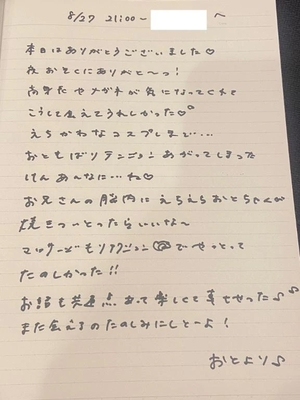 8/27 21:00~ へ
本日はありがとうございました♡
夜おそくにありがと〜っ!
おすたやメガネが気になってくれて
こうして会えてうれしかった♡
えちかわなコスプレまで…
おともばりテンションあがってしまった
けんあんなに…ね♡
お兄さんの脳内にえちえちおとちゃんが
焼きついとったらいいな〜
マッサージもリアクション でやっとって
たのしかった!!
お話も共通点あって楽しくて幸せやった♪♪
また会えるのたのしみにしとーよ!
おとより♪